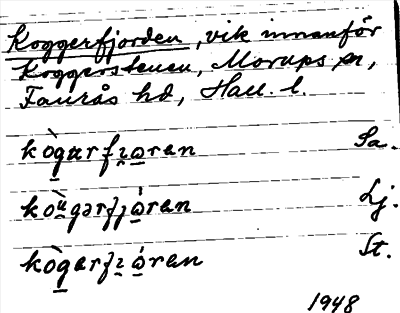 Koggerfjorden, vik innanför
Koggerstenen, Morups sn,
Faurås hd, Hall. l.
kògarfıøren Sa.
koùgərfjøren Lj.
kògerfıøren St.
1948